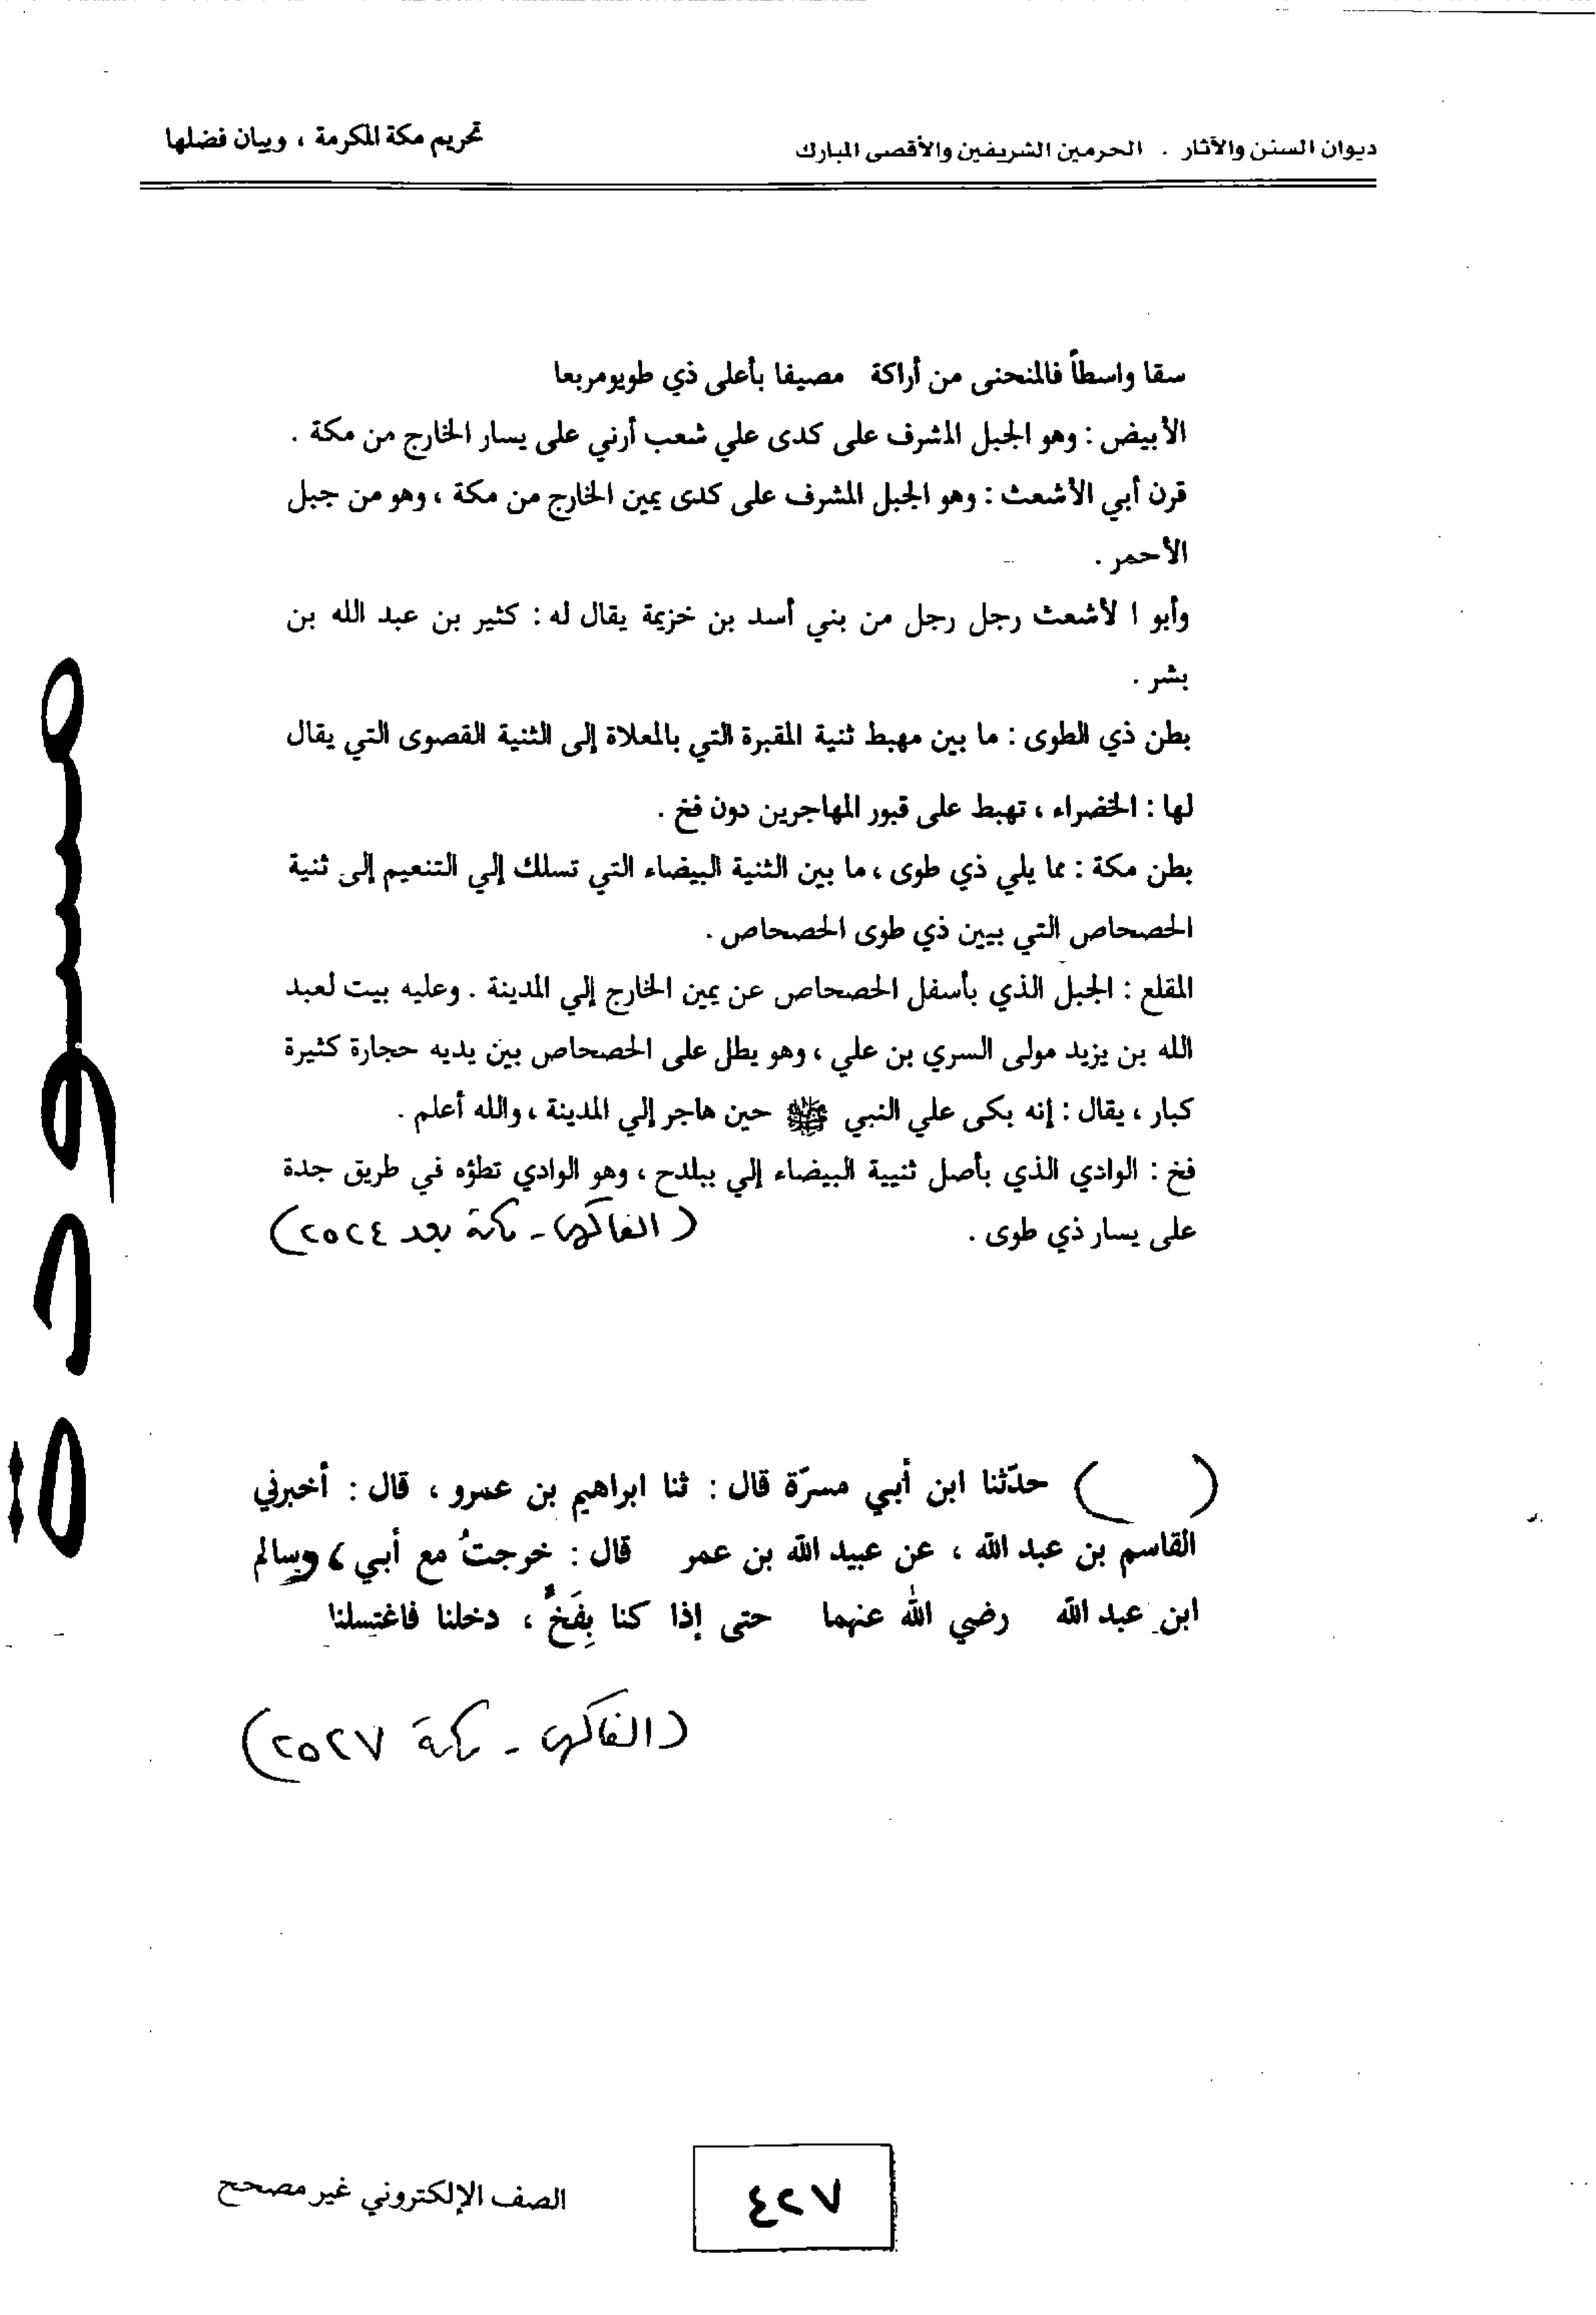 ديوان السنن والآثار . الحرمين الشريفين والأقصى المبارك
تحريم مكة المكرمة ، وبيان فضلها
سقا واسطاً فالمنحنى من أراكة مصيفا بأعلى ذي طويومربعا
الأبيض : وهو الجبل المشرف على كدى علي شعب أرني على يسار الخارج من مكة .
قرن أبي الأشعث : وهو الجبل المشرف على كدى يمين الخارج من مكة ، وهو من جبل
الأحمر .
وأبو ا لأشعث رجل رجل من بني أسد بن خزيمة يقال له : كثير بن عبد الله بن
بشر .
بطن ذي الطوى : ما بين مهبط ثنية المقبرة التي بالمعلاة إلى الثنية القصوى التي يقال
لها : الخضراء ، تهبط على قبور المهاجرين دون فخ .
بطن مكة : مما يلي ذي طوى ، ما بين الثنية البيضاء التي تسلك إلي التنعيم إلى ثنية
الحصحاص التي بيين ذي طوى الحصحاص .
المقلع : الجبل الذي بأسفل الحصحاص عن يمين الخارج إلي المدينة . وعليه بيت لعبد
الله بن يزيد مولى السري بن علي ، وهو يطل على الحصحاص بين يديه حجارة كثيرة
كبار ، يقال : إنه بكى علي النبي ﷺ حين هاجر إلي المدينة ، والله أعلم .
فخ : الوادي الذي بأصل ثنيية البيضاء إلي ببلدح ، وهو الوادي تطؤه في طريق جدة
على يسار ذي طوى . ( الفاكهي - مكة بعد ٢٥٢٤ )
( ) حدّثنا ابن أبي مسرّة قال : ثنا ابراهيم بن عمرو ، قال : أخبرني
القاسم بن عبد الله ، عن عبيد الله بن عمر قال : خرجتُ مع أبي ، وسالم
ابن عبد الله رضي الله عنهما حتى إذا كنا بِفَخٍّ ، دخلنا فاغتسلنا
( الفاكهي - مكة ٢٥٢٧ )
مسودة
٤٢٧
الصف الإلكتروني غير مصحح